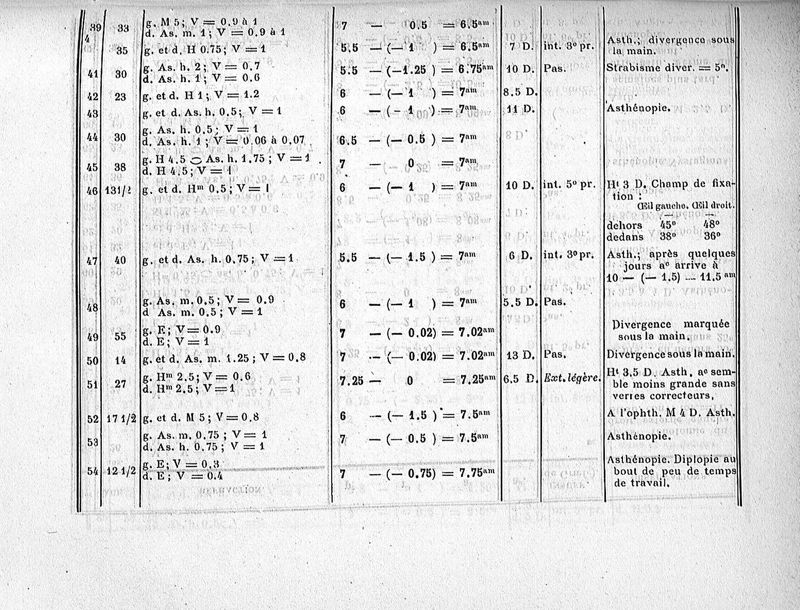 39 33 g. M 5; V = 0.9 à 1 7 0.5 = 6.5am
4 d. As. m. 1; V = 0.9 à 1
35 g. et d. H 0.75; V = 1 5.5 — (— 1 ) = 6.5am 7 D. int. 3º pr. Asth.; divergence sous
la main.
41 30 g. As. h. 2; V = 0.7 5.5 — (—1.25 ) = 6.75am 10 D. Pas. Strabisme diver. = 5º.
d. As. h. 1; V = 0.6
42 23 g. et d. H 1; V = 1.2 6 — (— 1 ) = 7am 8.5 D.
43 g. et d. As. h. 0,5; V = 1 6 — (— 1 ) = 7am 11 D. Asthénopie.
44 30 g. As. h. 0,5; V = 1 6.5 — (— 0.5 ) = 7am
d. As. h. 1; V = 0.06 à 0.07
45 38 g. H 4.5 ⊂ As. h. 1.75; V = 1 7 — 0 = 7am
d. H 4.5; V = 1
46 131/2 g. et d. Hm 0,5; V = 1 6 — (— 1 ) = 7am 10 D. int. 5º pr. Ht 3 D. Champ de fixa-
tion :
Œil gauche. Œil droit.
dehors 45º 48º
dedans 38º 36º
47 40 g. et d. As. h. 0,75; V = 1 5.5 — (— 1.5 ) = 7am 6 D. int. 3º pr. Asth.; après quelques
jours ac arrive à
10 — (— 1.5) — 11.5 am
48 g. As. m. 0,5; V = 0.9 6 — (— 1 ) = 7am 5,5 D. Pas.
d As. m. 0,5; V = 1
49 55 g. E; V = 0.9 7 — (— 0.02) = 7.02am Divergence marquée
d. E; V = 1 sous la main.
50 14 g. et d. As. m. 1.25; V = 0,8 7 — (— 0.02) = 7.02am 13 D. Pas. Divergence sous la main.
51 27 g. Hm 2.5; V = 0.6 7.25 — 0 = 7.25am 6.5 D. Ext. légère. Ht 3,5 D. Asth, ac sem-
d. Hm 2,5; V = 1 ble moins grande sans
verres correcteurs,
52 17 1/2 g. et d. M 5; V = 0.8 6 — (— 1.5 ) = 7.5am A l'ophth. M 4 D. Asth.
53 g. As. m. 0.75; V = 1 7 — (— 0.5 ) = 7.5am Asthénopie.
d. As. h. 0.75; V = 1
54 12 1/2 g. E; V = 0.3 7 — (— 0.75) = 7.75am Asthénopie. Diplopie au
d. E; V = 0.4 bout de peu de temps
de travail.